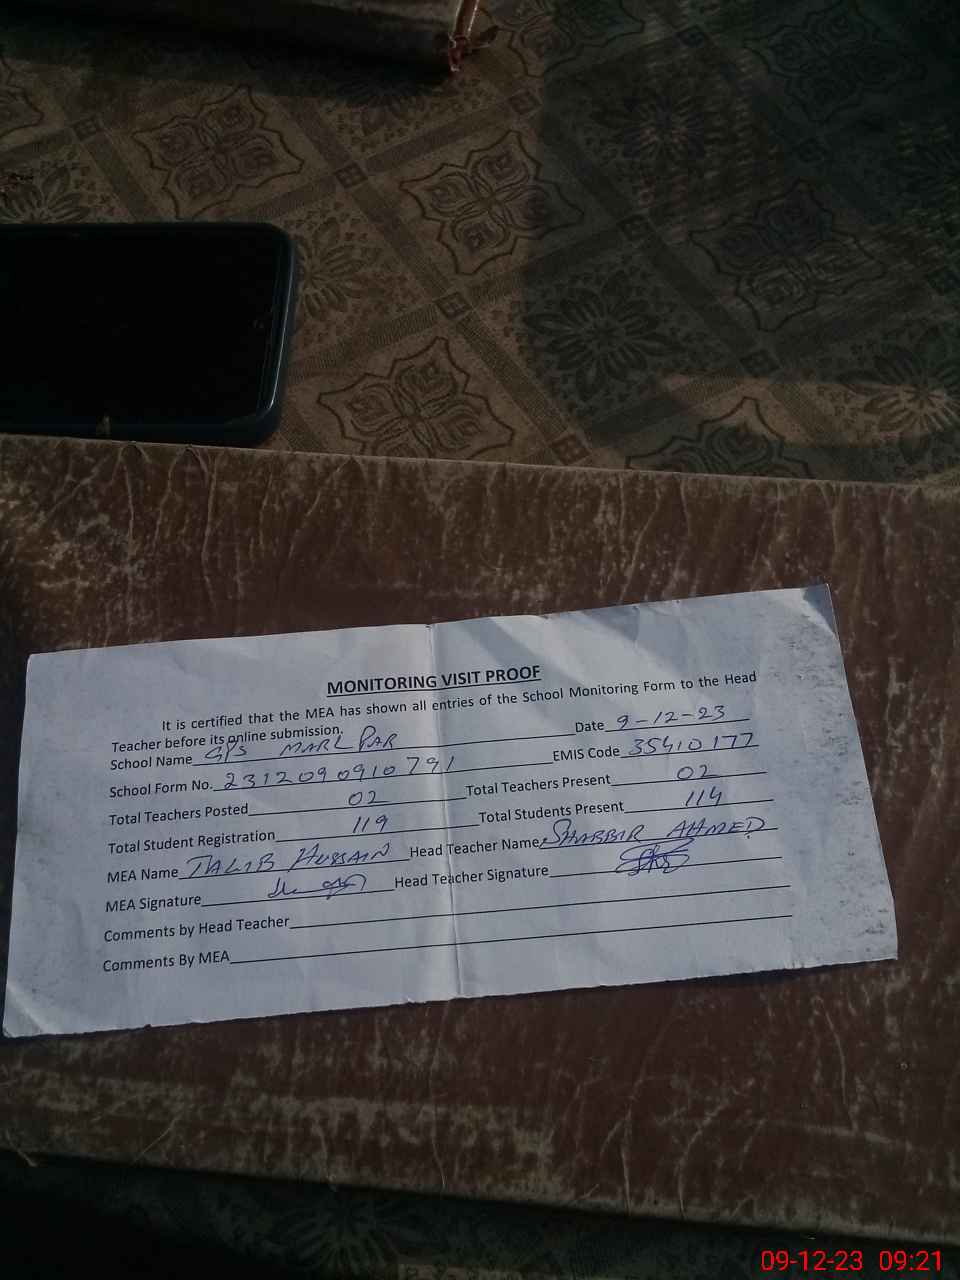 MONITORING VISIT PROOF
It is certified that the MEA has shown all entries of the School Monitoring Form to the Head
Teacher before its online submission.
Date 9-12-23
School Name GPS MARL PAR
School Form No. 2312090910791 EMIS Code 35410177
Total Teachers Posted 02 Total Teachers Present 02
Total Student Registration 119 Total Students Present 114
MEA Name TALIB HUSSAIN Head Teacher Name SHABBIR AHMED
MEA Signature Head Teacher Signature
Comments by Head Teacher
Comments By MEA
09-12-23 09:21